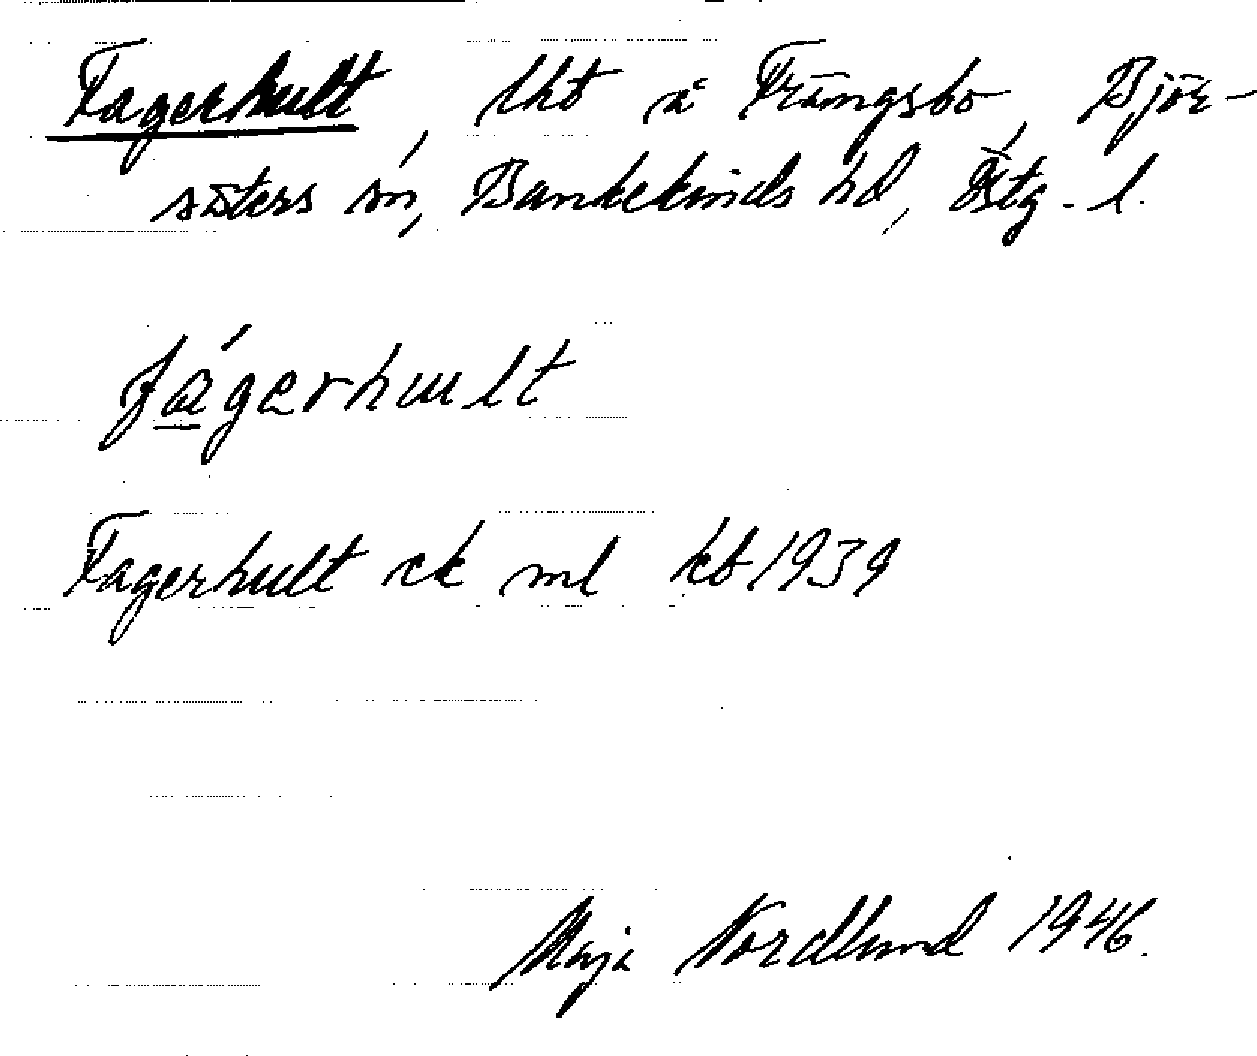 Fagerhult, lht å Trängsbo, Björ-
säters sn, Bankekinds hd, Östg. l.
fàgerhult
Fagerhult ck ml kb 1939
Maja Nordlund 1946.